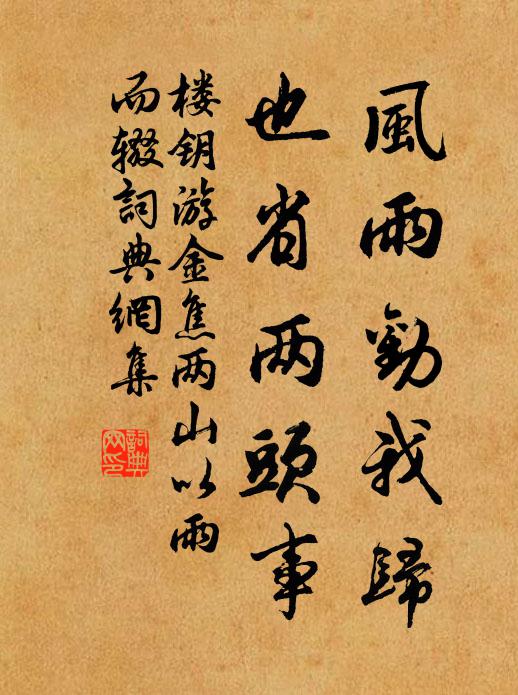 風雨勸我歸
也省两頭事
楼钥游金焦两山以雨
而辍詞典網集
詞典
网印